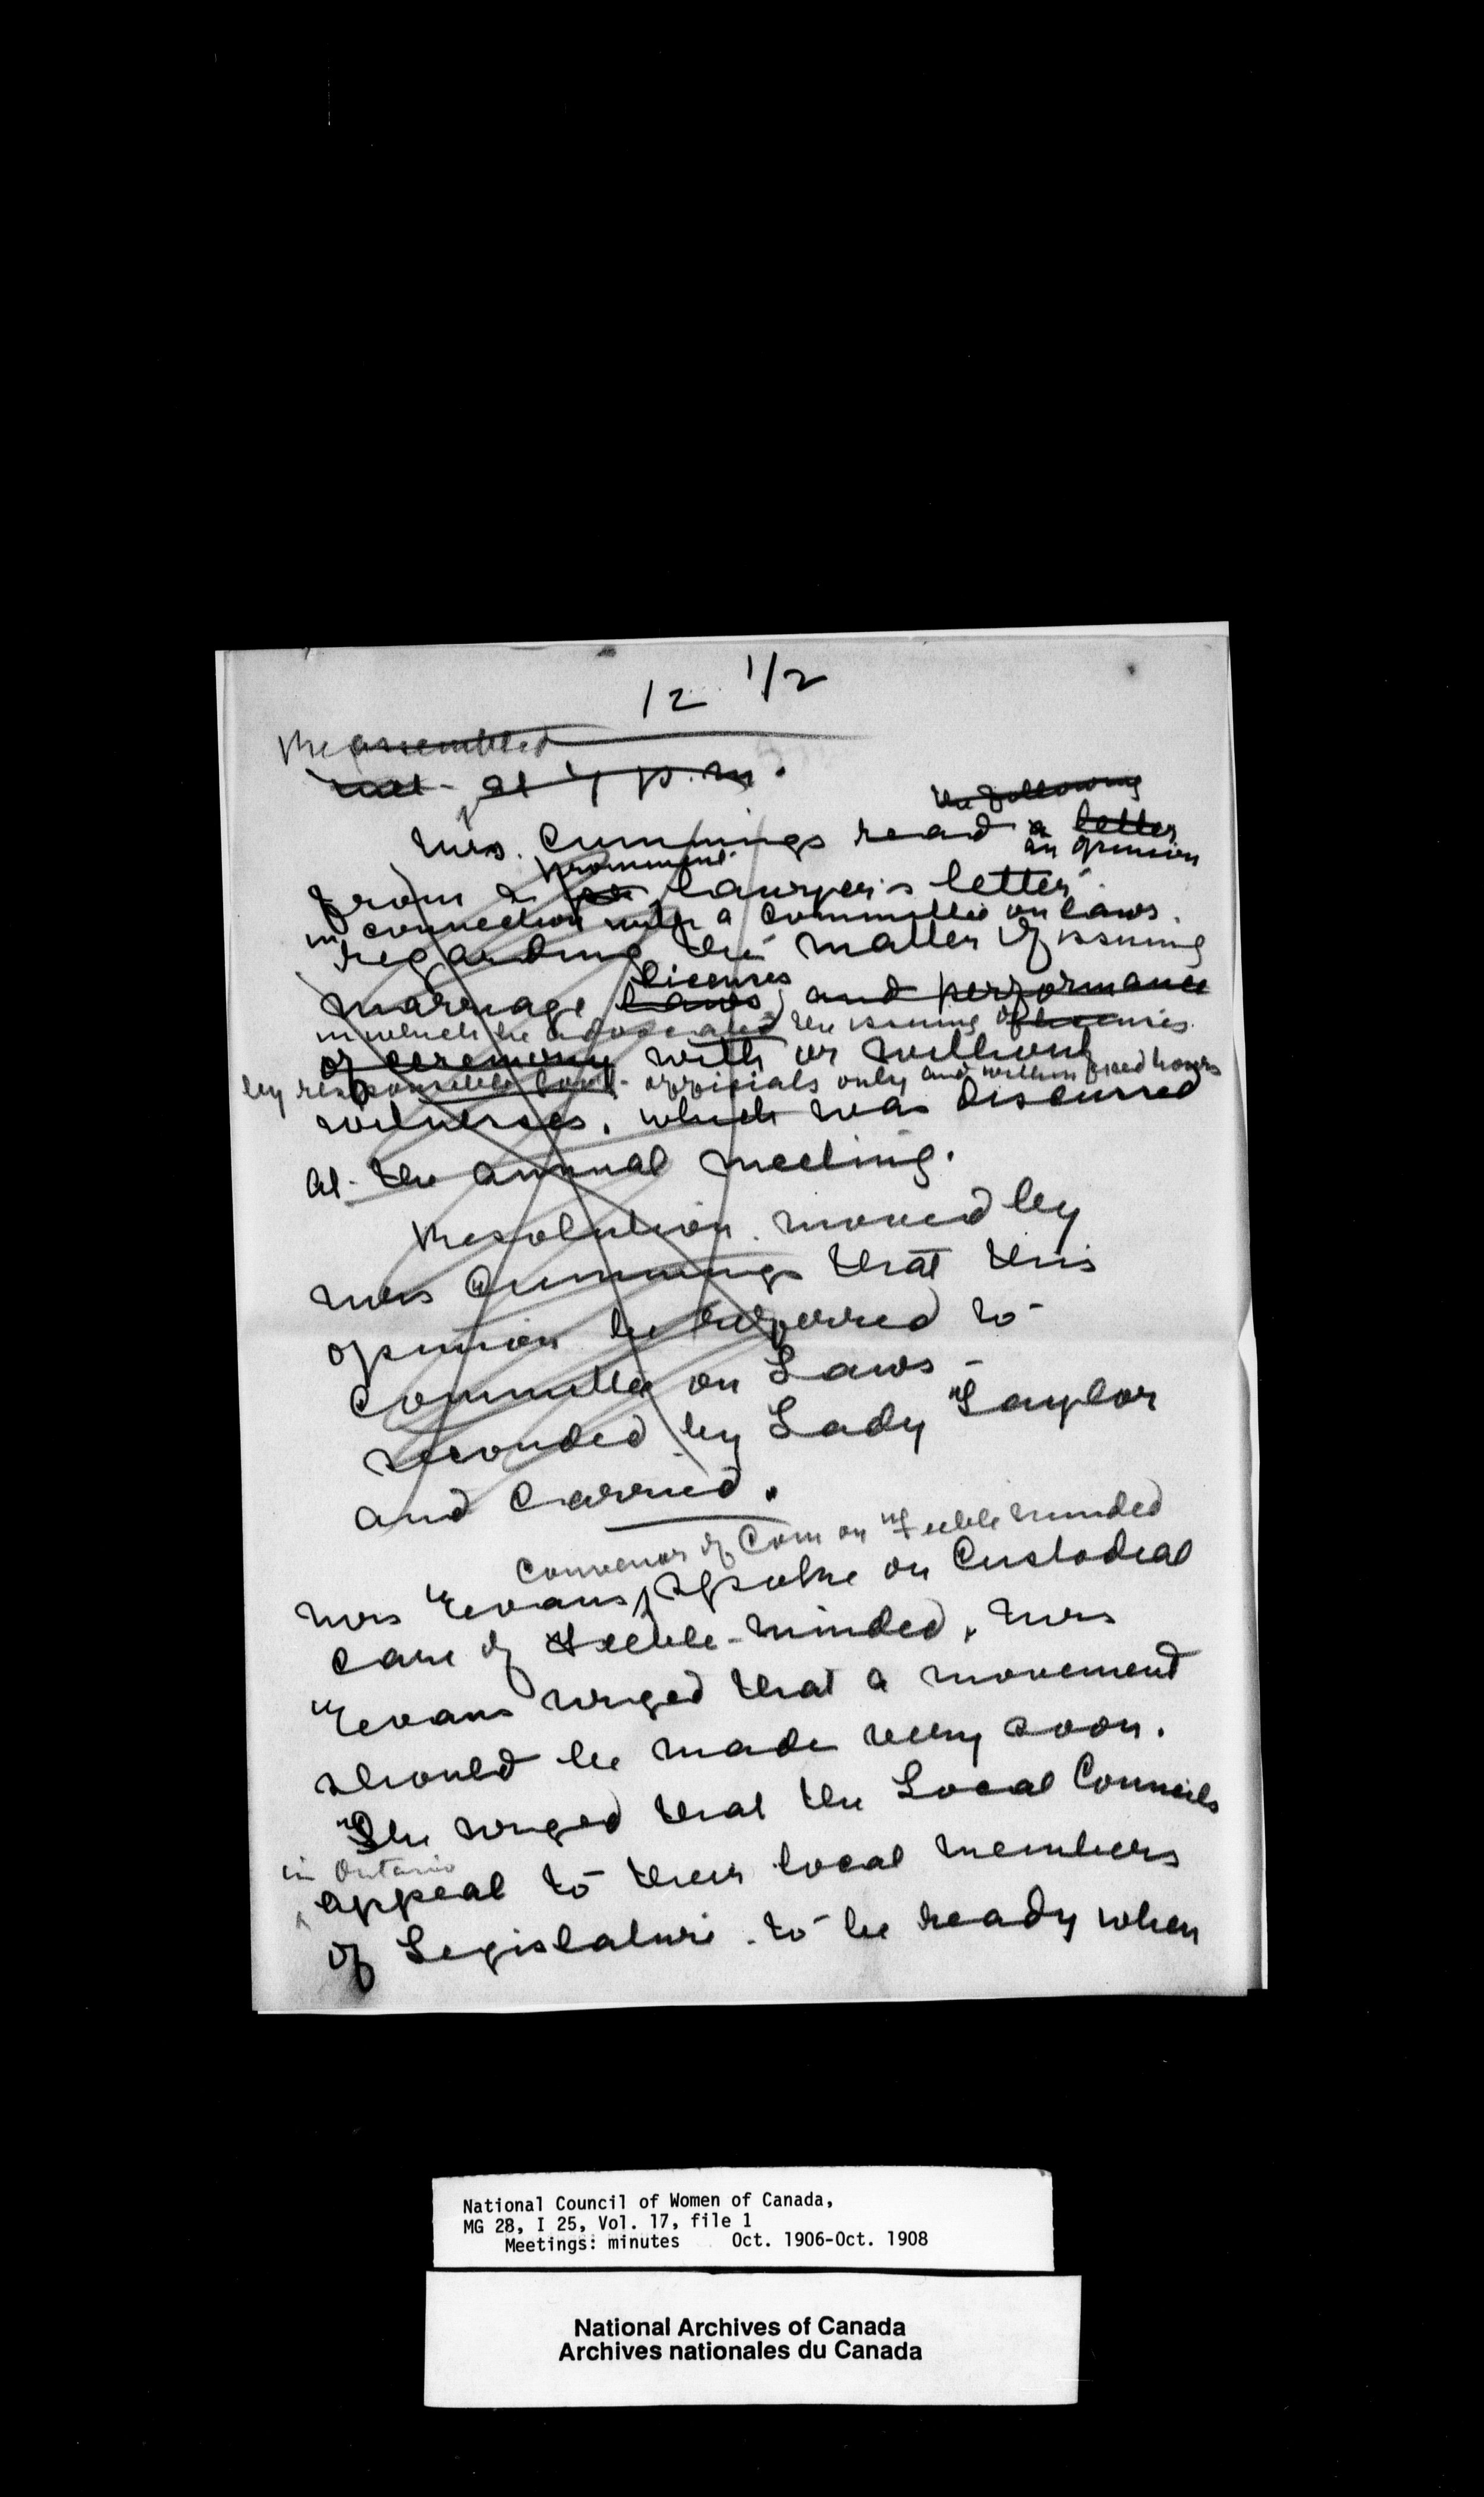 12 1/2
Reassembled
met at 7 p.m.
the following
Mrs. Cummings read a letter
an opinion
prominent
from a lawyer's letter
in connection with a committee on laws.
regarding the matter of issuing
licenses
marriage laws, and performance
in which he advocated the issuing of licenses
of ceremony with or without
by responsible Govt. officials only and within fixed hours
witnesses. which was discussed
at the annual meeting.
Resolution moved by
Mrs Cummings that this
opinion be referred to
Committee on Laws -
seconded by Lady Taylor
and carried.
Convenor of Com on Feeble minded
Mrs Evans, spoke on Custodial
care of Feeble-minded, Mrs
Evans urged that a movement
should be made very soon.
She urged that the Local Councils
in Ontario
appeal to their local members
of Legislature to be ready when
National Council of Women of Canada,
MG 28, I 25, Vol. 17, file 1
Meetings: minutes Oct. 1906-Oct. 1908
National Archives of Canada
Archives nationales du Canada